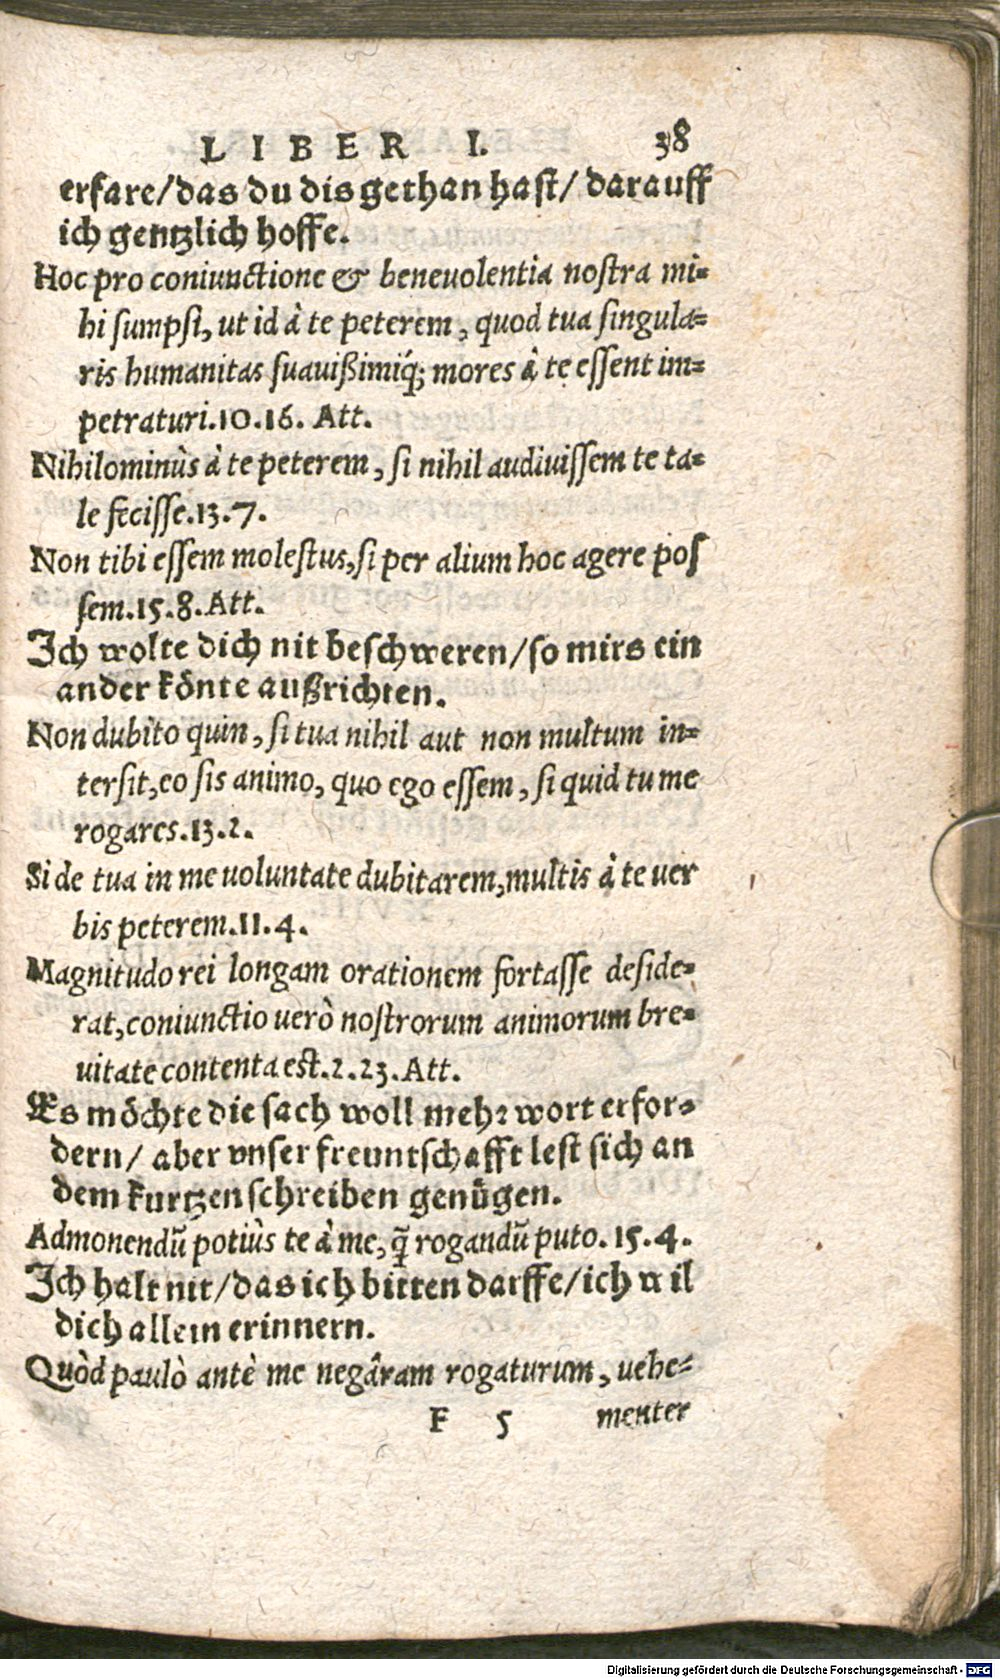 LIBER I. 38
erfare/das du dis gethan hast/ darauff
ich gentzlich hoffe.
Hoc pro coniunctione & beneuolentia nostra mi-
hi sumpsi, ut id à te peterem, quod tua singula-
ris humanitas suauißimiq́; mores à te essent im-
petraturi.10.16. Att.
Nihilominùs à te peterem, si nihil audiuissem te ta-
le fecisse.13.7.
Non tibi essem molestus, si per alium hoc agere pos
sem.15.8.Att.
Ich wolte dich nit beschweren/so mirs ein
ander koͤnte außrichten.
Non dubito quin, si tua nihil aut non multum in-
tersit, eo sis animo, quo ego essem, si quid tu me
rogares.13.2.
Si de tua in me uoluntate dubitarem, multis à te uer
bis peterem.11.4.
Magnitudo rei longam orationem fortasse deside-
rat, coniunctio uerò nostrorum animorum bre-
uitate contenta est.2.23.Att.
Es moͤchte die sach woll mehr wort erfor-
dern/ aber vnser freuntschafft lest sich an
dem kurtzen schreiben genuͤgen.
Admonendũ potiùs te à me, q̃ rogandũ puto. 15.4.
Ich halt nit/das ich bitten darffe/ich wil
dich allein erinnern.
Quòd paulò antè me negâram rogaturum, uehe-
F 5 menter
Digitalisierung gefördert durch die Deutsche Forschungsgemeinschaft - DFG